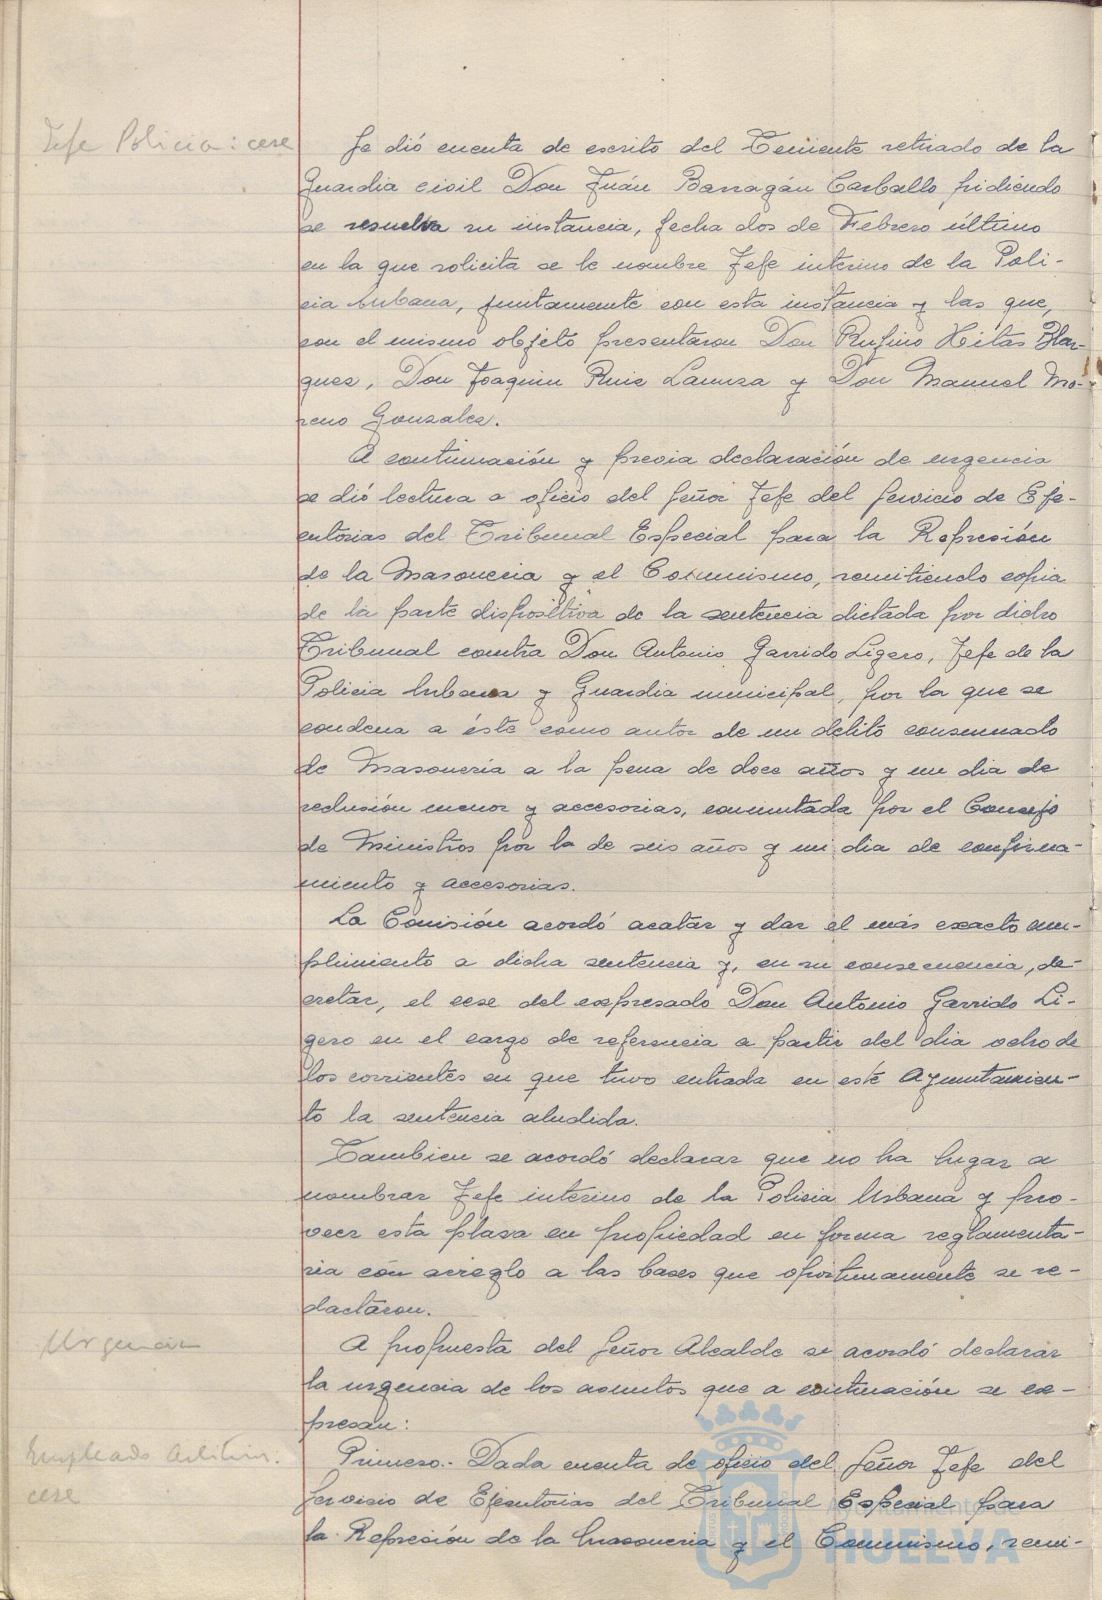 Jefe Policia: cese
Se dió cuenta de escrito del Teniente retirado de la
Guardia civil Don Juán Barragán Carballo, pidiendo
se resuelva su instancia, fecha dos de Febrero último
en la que solicita se le nombre Jefe interino de la Poli-
cia Urbana, juntamente con esta instancia y las que,
con el mismo objeto presentaron Don Rufino Hitas Blar-
quez, Don Joaquin Ruiz Lanuza y Don Manuel Mo-
reno Gonzalez.
A continuación y previa declaración de urgencia
se dió lectura a oficio del Señor Jefe del Servicio de Eje-
cutorias del Tribunal Especial para la Represión
de la Masoneria y el Comunismo, remitiendo copia
de la parte dispositiva de la sentencia dictada por dicho
Tribunal contra Don Antonio Garrido Ligero, Jefe de la
Policia Urbana y Guardia municipal, por la que se
condena a éste como autor de un delito consumado
de Masonería a la pena de doce años y un dia de
reclusión menor y accesorias, conmutada por el Consejo
de Ministros por la de seis años y un dia de confina-
miento y accesorias.
La Comisión acordó acatar y dar el más exacto cum-
plimiento a dicha sentencia y, en su consecuencia, de-
cretar, el cese del expresado Don Antonio Garrido Li-
gero en el cargo de referencia a partir del dia ocho de
los corrientes en que tuvo entrada en esté Ayuntamien-
to la sentencia aludida.
Tambien se acordó declarar que no ha lugar a
nombrar Jefe interino de la Policia Urbana y pro-
veer esta plaza en propiedad en forma reglamenta-
ria cón arreglo a las bases que oportunamente se re-
dactaron.
Urgencia
A propuesta del Señor Alcalde se acordó declarar
la urgencia de los asuntos que a continuación se ex-
presan:
Empleado Arbitrios:
cese
Primero.- Dada cuenta de oficio del Señor Jefe del
Servicio de Ejecutorias del Tribunal Especial para
la Represión de la Masoneria y el Comunismo, remi-
Ayuntamiento de
HUELVA